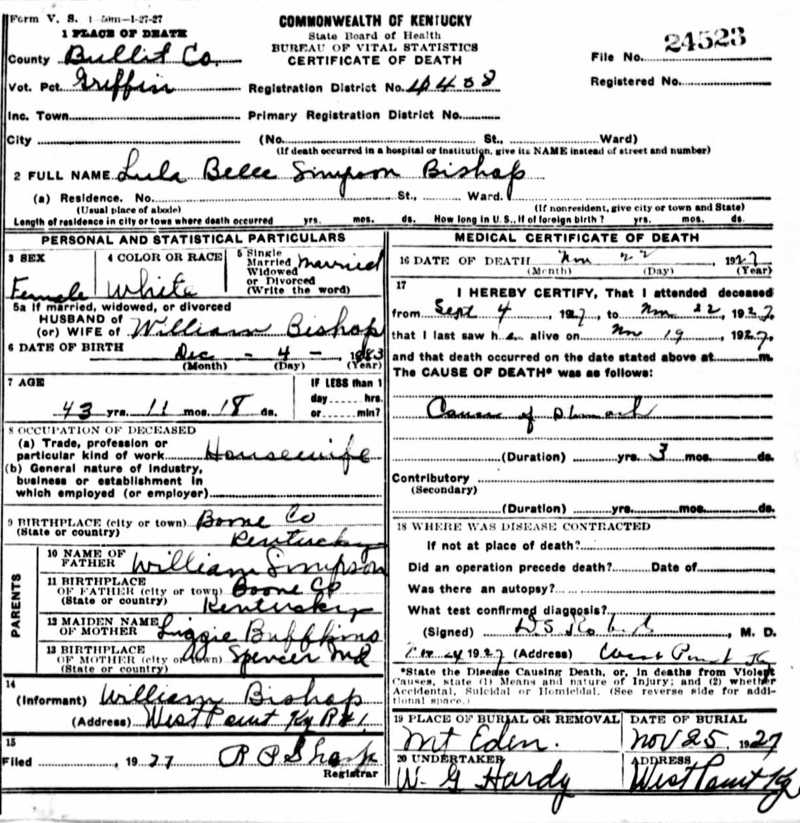 Form V. S. 1-50m-1-27-27
COMMONWEALTH OF KENTUCKY
State Board of Health
BUREAU OF VITAL STATISTICS
CERTIFICATE OF DEATH
1 PLACE OF DEATH
County Bullit Co.
File No. 24523
Vot. Pct. Griffin
Registration District No.
Registered No.
Inc. Town
Primary Registration District No.
City
(No. St., Ward)
(If death occurred in a hospital or institution, give its NAME instead of street and number)
2 FULL NAME Lula Belle Simpson Bishop
(a) Residence. No. St., Ward.
(Usual place of abode)
(If nonresident, give city or town and State)
Length of residence in city or town where death occurred yrs. mos. ds. How long in U. S., if of foreign birth? yrs. mos. ds.
PERSONAL AND STATISTICAL PARTICULARS
3 SEX
Female
4 COLOR OR RACE
White
5 Single
Married
Widowed
or Divorced
(Write the word)
Married
5a If married, widowed, or divorced
HUSBAND OF
(or) WIFE OF William Bishop
6 DATE OF BIRTH Dec - 4 - 1883
(Month) (Day) (Year)
7 AGE
43 yrs. 11 mos. 18 ds.
IF LESS than 1
day hrs.
or min?
8 OCCUPATION OF DECEASED
(a) Trade, profession or
particular kind of work Housewife
(b) General nature of industry,
business or establishment in
which employed (or employer)
9 BIRTHPLACE (city or town) Boone Co
(State or country) Kentucky
PARENTS
10 NAME OF
FATHER William Simpson
11 BIRTHPLACE
OF FATHER (city or town) Boone Co
(State or country) Kentucky
12 MAIDEN NAME
OF MOTHER
13 BIRTHPLACE
OF MOTHER (city or town) Spencer
(State or country)
14
(Informant) William Bishop
(Address) West Point Ky R#1
15
Filed 1927 R P Sharp
Registrar
MEDICAL CERTIFICATE OF DEATH
16 DATE OF DEATH Nov 22 1927
(Month) (Day) (Year)
17
I HEREBY CERTIFY, That I attended deceased
from Sept 4, 1927, to Nov 22, 1927,
that I last saw h alive on Nov 19, 1927,
and that death occurred on the date stated above at m.
The CAUSE OF DEATH* was as follows:
Cancer of Stomach
(Duration) yrs. 3 mos. ds.
Contributory
(Secondary)
(Duration) yrs. mos. ds.
18 WHERE WAS DISEASE CONTRACTED
If not at place of death?
Did an operation precede death? Date of
Was there an autopsy?
What test confirmed diagnosis?
(Signed) , M. D.
1927 (Address) West Point Ky
*State the Disease Causing Death, or, in deaths from Violent
Causes, state (1) Means and nature of Injury; and (2) whether
Accidental, Suicidal or Homicidal. (See reverse side for addi-
tional space.)
19 PLACE OF BURIAL OR REMOVAL
Mt Eden.
DATE OF BURIAL
Nov 25 1927
20 UNDERTAKER
W. G Hardy
ADDRESS
West Point Ky